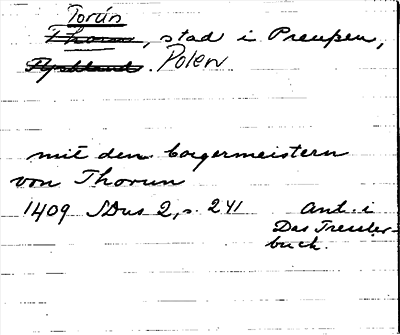 Torún
Thorun, stad i Preuβen,
Tyskland. Polen
mit den borgermeistern
von Thorun
1409 SDns 2, s. 241 Ant. i
Das Tressler-
buch.